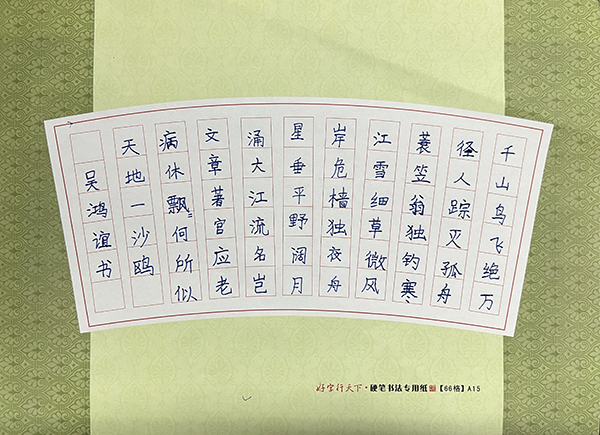 千山鸟飞绝万
径人踪灭孤舟
蓑笠翁独钓寒
江雪细草微风
岸危樯独夜舟
星垂平野阔月
涌大江流名岂
文章著官应老
病休飘〻何所似
天地一沙鸥
吴鸿谊书
好字行天下·硬笔书法专用纸【66格】A15